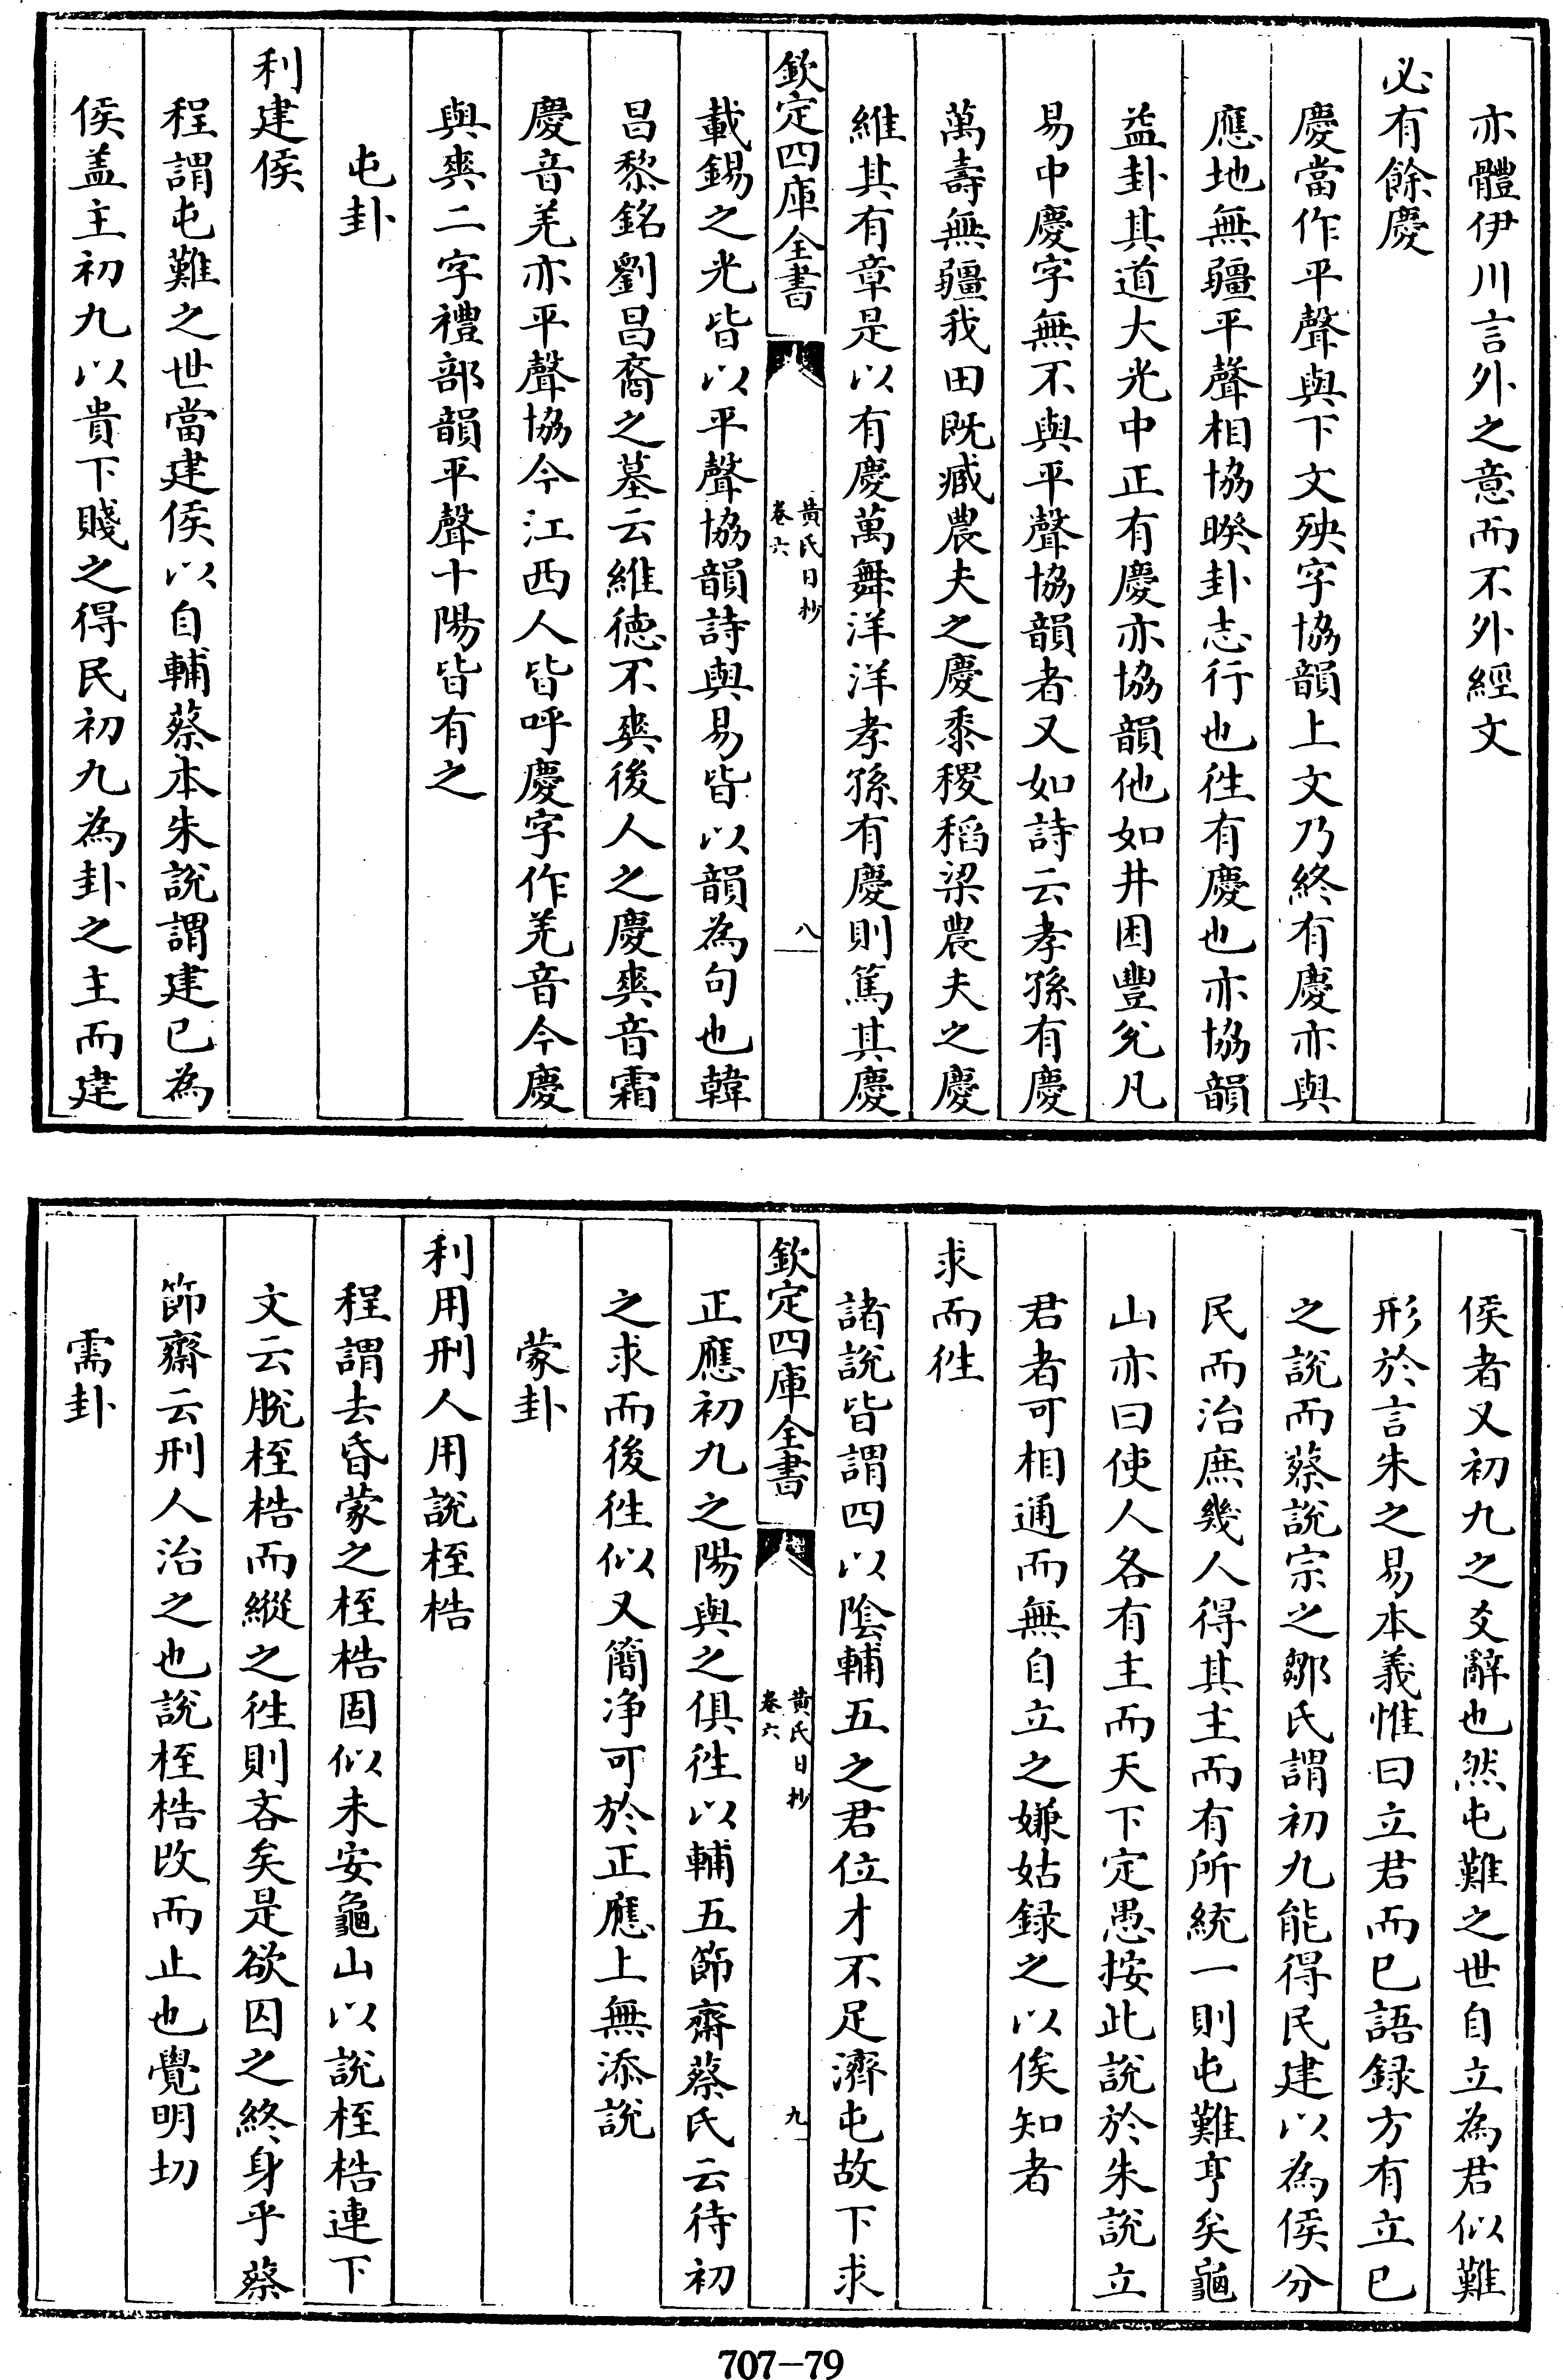 亦體伊川言外之意而不外經文
必有餘慶
慶當作平聲與下文殃字協韻上文乃終有慶亦與
應地無疆平聲相協睽卦志行也徃有慶也亦協韻
益卦其道大光中正有慶亦協韻他如井困豐兊凡
易中慶字無不與平聲協韻者又如詩云孝孫有慶
萬壽無疆我田既臧農夫之慶黍稷稻梁農夫之慶
維其有章是以有慶萬舞洋洋孝孫有慶則篤其慶
欽定四庫全書
黄氏日抄
卷六
八
載錫之光皆以平聲協韻詩與易皆以韻為句也韓
昌黎銘劉昌裔之墓云維徳不爽後人之慶爽音霜
慶音羌亦平聲協今江西人皆呼慶字作羌音今慶
與爽二字禮部韻平聲十陽皆有之
屯卦
利建侯
程謂屯難之世當建侯以自輔蔡本朱說謂建已為
侯盖主初九以貴下賤之得民初九為卦之主而建
侯者又初九之爻辭也然屯難之世自立為君似難
形於言朱之易本義惟曰立君而已語録方有立已
之說而蔡說宗之鄒氏謂初九能得民建以為侯分
民而治庶幾人得其主而有所統一則屯難亨矣龜
山亦曰使人各有主而天下定愚按此說於朱說立
君者可相通而無自立之嫌姑録之以俟知者
求而徃
諸說皆謂四以隂輔五之君位才不足濟屯故下求
欽定四庫全書
黄氏日抄
卷六
九
正應初九之陽與之俱徃以輔五節齋蔡氏云待初
之求而後徃似又簡净可於正應上無添說
蒙卦
利用刑人用說桎梏
程謂去昏蒙之桎梏固似未安龜山以說桎梏連下
文云脫桎梏而縱之徃則吝矣是欲囚之終身乎蔡
節齋云刑人治之也說桎梏改而止也覺明切
需卦
707-79